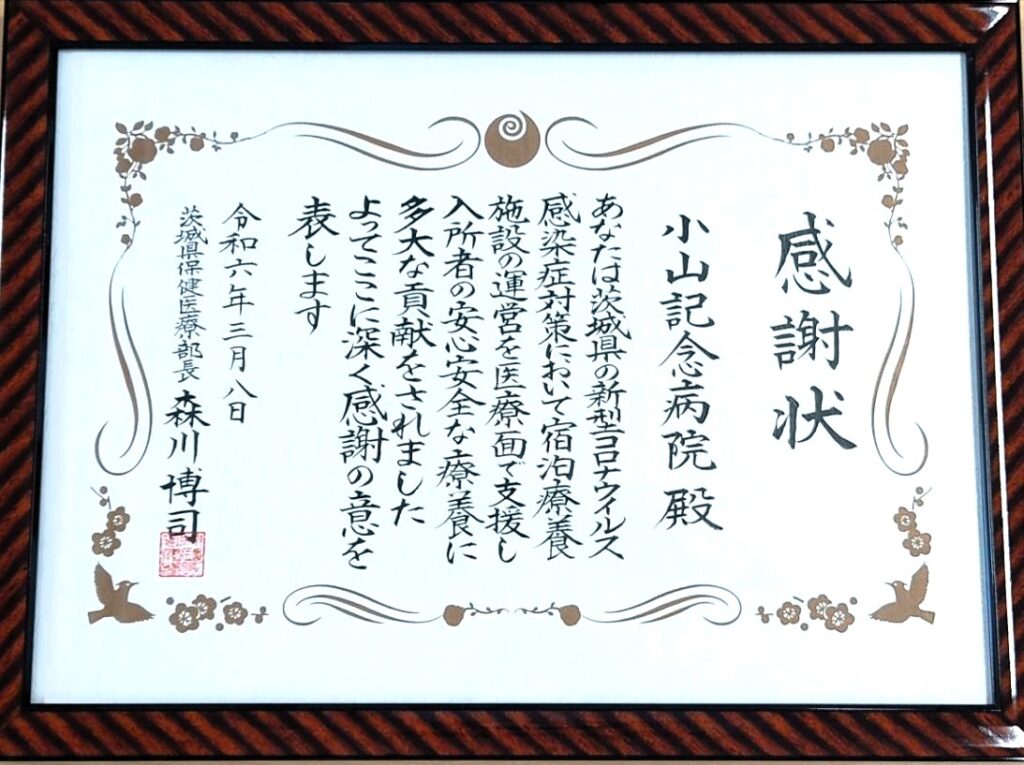 感謝状
小山記念病院 殿
あなたは茨城県の新型コロナウィルス
感染症対策において宿泊療養
施設の運営を医療面で支援し
入所者の安心安全な療養に
多大な貢献をされました
よってここに深く感謝の意を
表します
令和六年三月八日
茨城県保健医療部長 森川博司